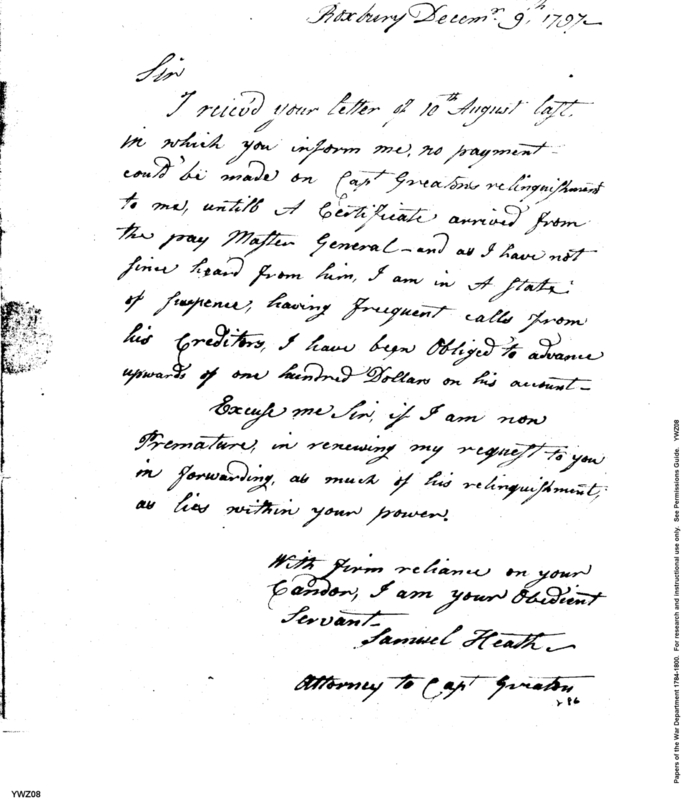 Roxbury Decemr. 9th, 1797
Sir
I reciev'd your letter of 10th August last,
in which you inform me, no payment
could be made on Capt Greaton's relinquishment
to me, untill A Certificate arrived from
the pay Master General - and as I have not
since heard from him, I am in A State
of suspence, having frequent calls from
his Creditors, I have been Obliged to advance
upwards of one hundred Dollars on his account -
Excuse me Sir, if I am non
Premature, in renewing my request to you
in forwarding, as much of his relinquishment,
as lies within your power.
With firm reliance on your
Candor, I am your Obedient
Servant -
Samuel Heath
Attorney to Capt Greaton
YWZ08
Papers of the War Department 1784-1800. For research and instructional use only. See Permissions Guide. YWZ08